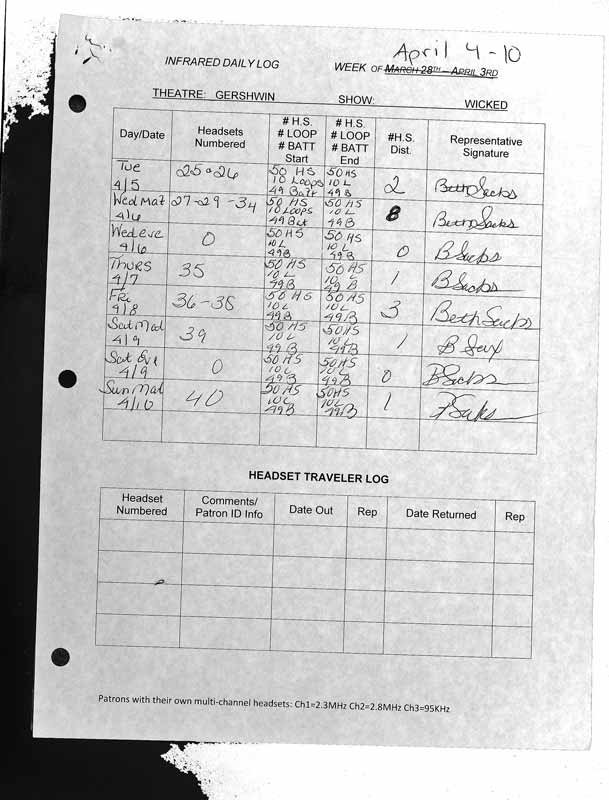 April 4-10
INFRARED DAILY LOG WEEK OF MARCH 28TH - APRIL 3RD
THEATRE: GERSHWIN SHOW: WICKED
Day/Date Headsets Numbered # H.S. # LOOP # BATT Start # H.S. # LOOP # BATT End #H.S. Dist. Representative Signature
Tue 4/5 25-26 50 HS 10 Loops 49 Batt 50 HS 10 L 49 B 2 Beth Sacks
Wed Mat 4/6 27-29-34 50 HS 10 LOOPS 49 Bat 50 HS 10 L 49 B 8 Beth Sacks
Wed eve 4/6 0 50 HS 10 L 49B 50 HS 10 L 49B 0 B Sacks
THURS 4/7 35 50 HS 10 L 49B 50 HS 10 L 49 B 1 B Sacks
Fri 4/8 36-38 50 HS 10 L 49B 50 HS 10 L 49B 3 Beth Sacks
Sat Mat 4/9 39 50 HS 10 L 49 B 50 HS 10 L 49B 1 B Sax
Sat Eve 4/9 0 50 HS 10 L 49B 50 HS 10 L 49B 0 B Sacks
Sun Mat 4/10 40 50 HS 10 L 49B 50 HS 10 L 49B 1
HEADSET TRAVELER LOG
Headset Numbered Comments/ Patron ID Info Date Out Rep Date Returned Rep
Patrons with their own multi-channel headsets: Ch1=2.3MHz Ch2=2.8MHz Ch3=95KHz